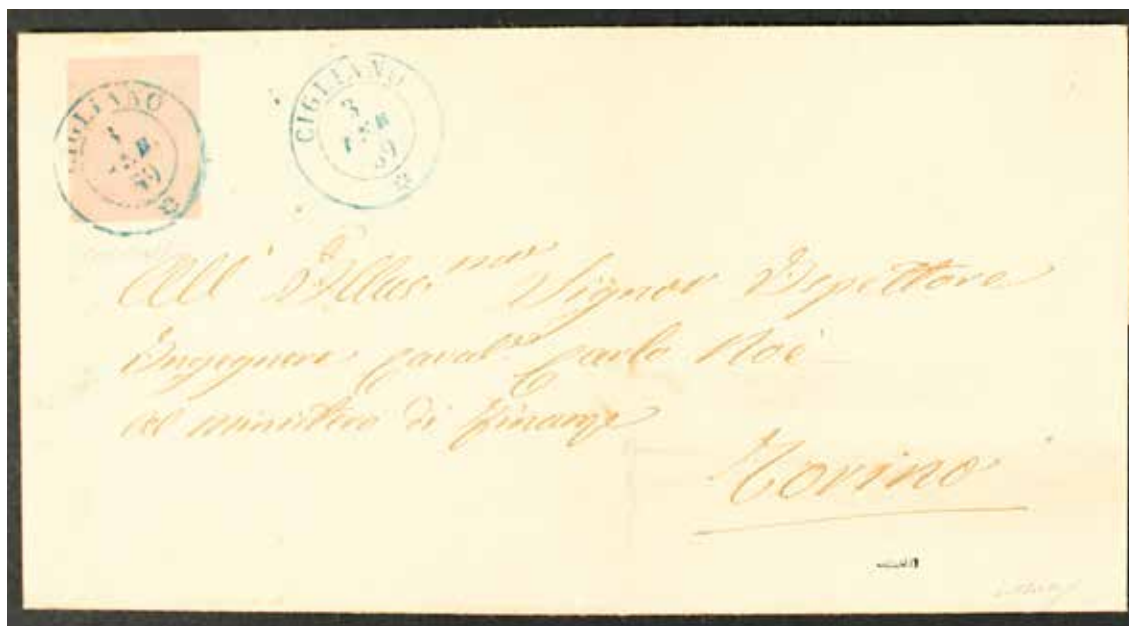 CIGLIANO
3
59
CIGLIANO
3
59
All' Illus.mo Signor Ispettore
Ingegnere Caval.e Carlo Noè
al ministero di finanze
Torino